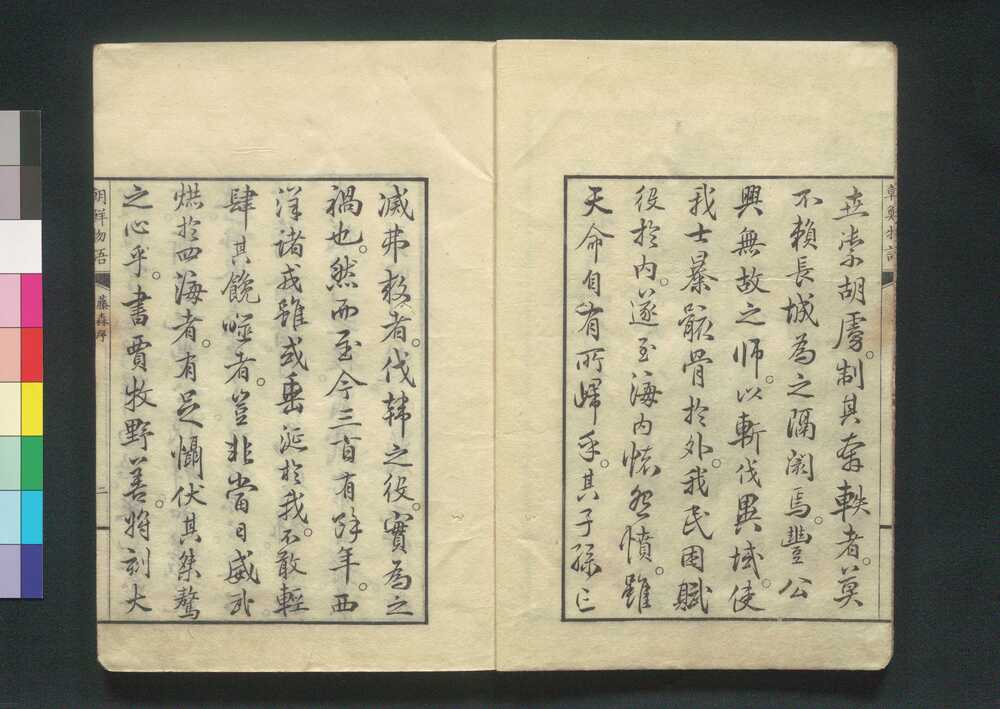 世崇胡虜。制其奔軼者。莫
不賴長城為之隔閡焉。豐公
興無故之師。以斬伐異域。使
我士暴骸骨於外。我民困賦
役於內。遂至海內懷怨憤。雖
天命自有所歸乎。其子孫亡
滅弗救者。伐韓之役。實為之
禍也。然而至今三百有餘年。西
洋諸戎雖或垂涎於我。不敢輕
肆其饞噬者。豈非當日威武
烘於四海者。有足懾伏其桀驁
之心乎。書賈牧野善。將刻大
朝鮮物語
藤森序
二